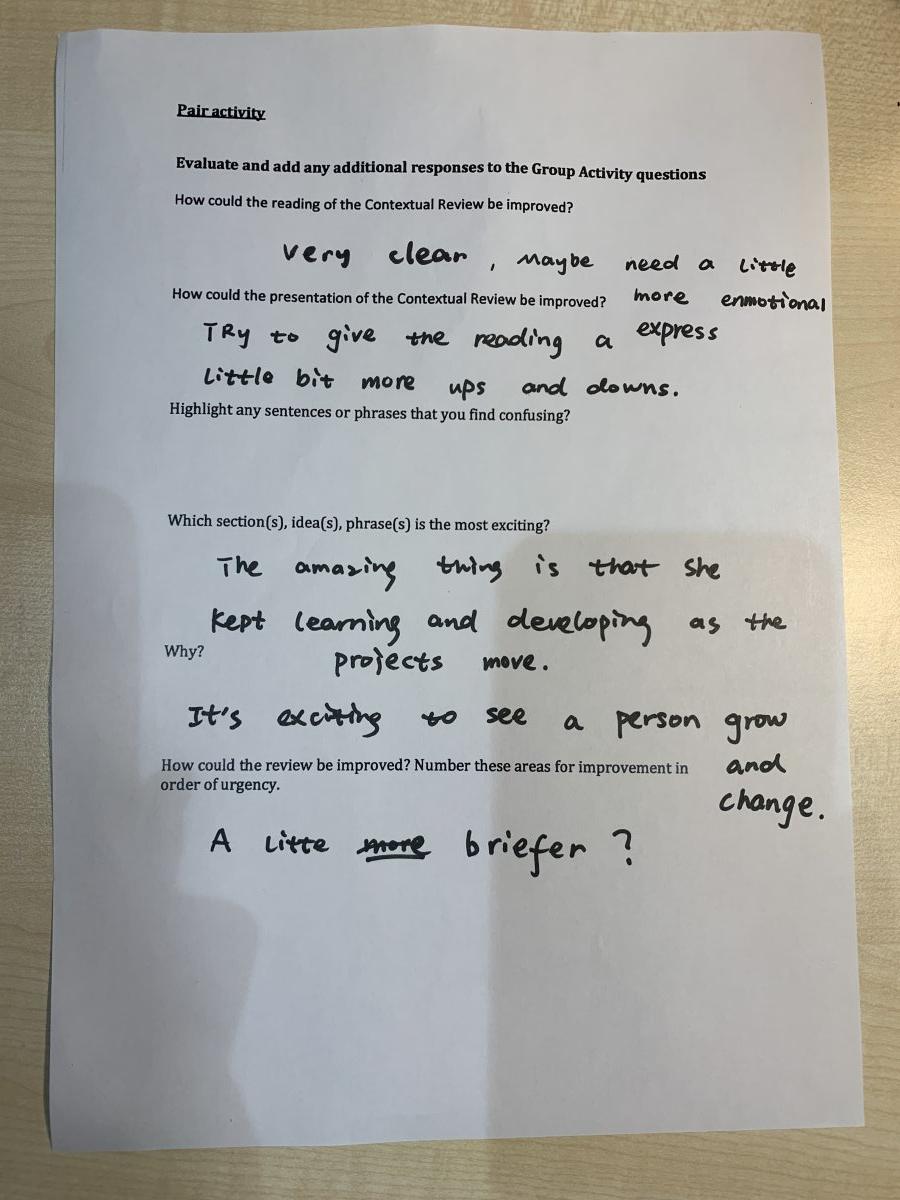 Pair activity
Evaluate and add any additional responses to the Group Activity questions
How could the reading of the Contextual Review be improved?
very clear, Maybe need a little
more enmotional
express
How could the presentation of the Contextual Review be improved?
TRy to give the reading a
little bit more ups and downs.
Highlight any sentences or phrases that you find confusing?
Which section(s), idea(s), phrase(s) is the most exciting?
The amazing thing is that she
kept learning and developing as the
projects move.
Why?
It's exciting to see a person grow
and
change.
How could the review be improved? Number these areas for improvement in
order of urgency.
A Litte more briefer ?